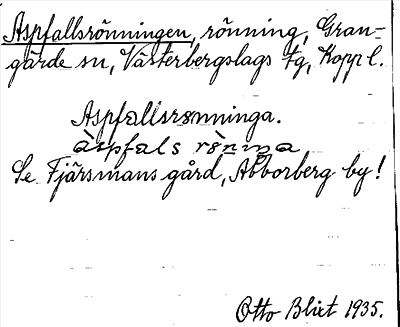 Aspfallsrönningen, rönning, Gran-
gärde sn, Västerbergslags tg, Kopp l.
Aspfallsrønninga.
àspfals rönıŋa
Se Fjärsmans gård, Abborberg by!
Otto Blixt 1935.